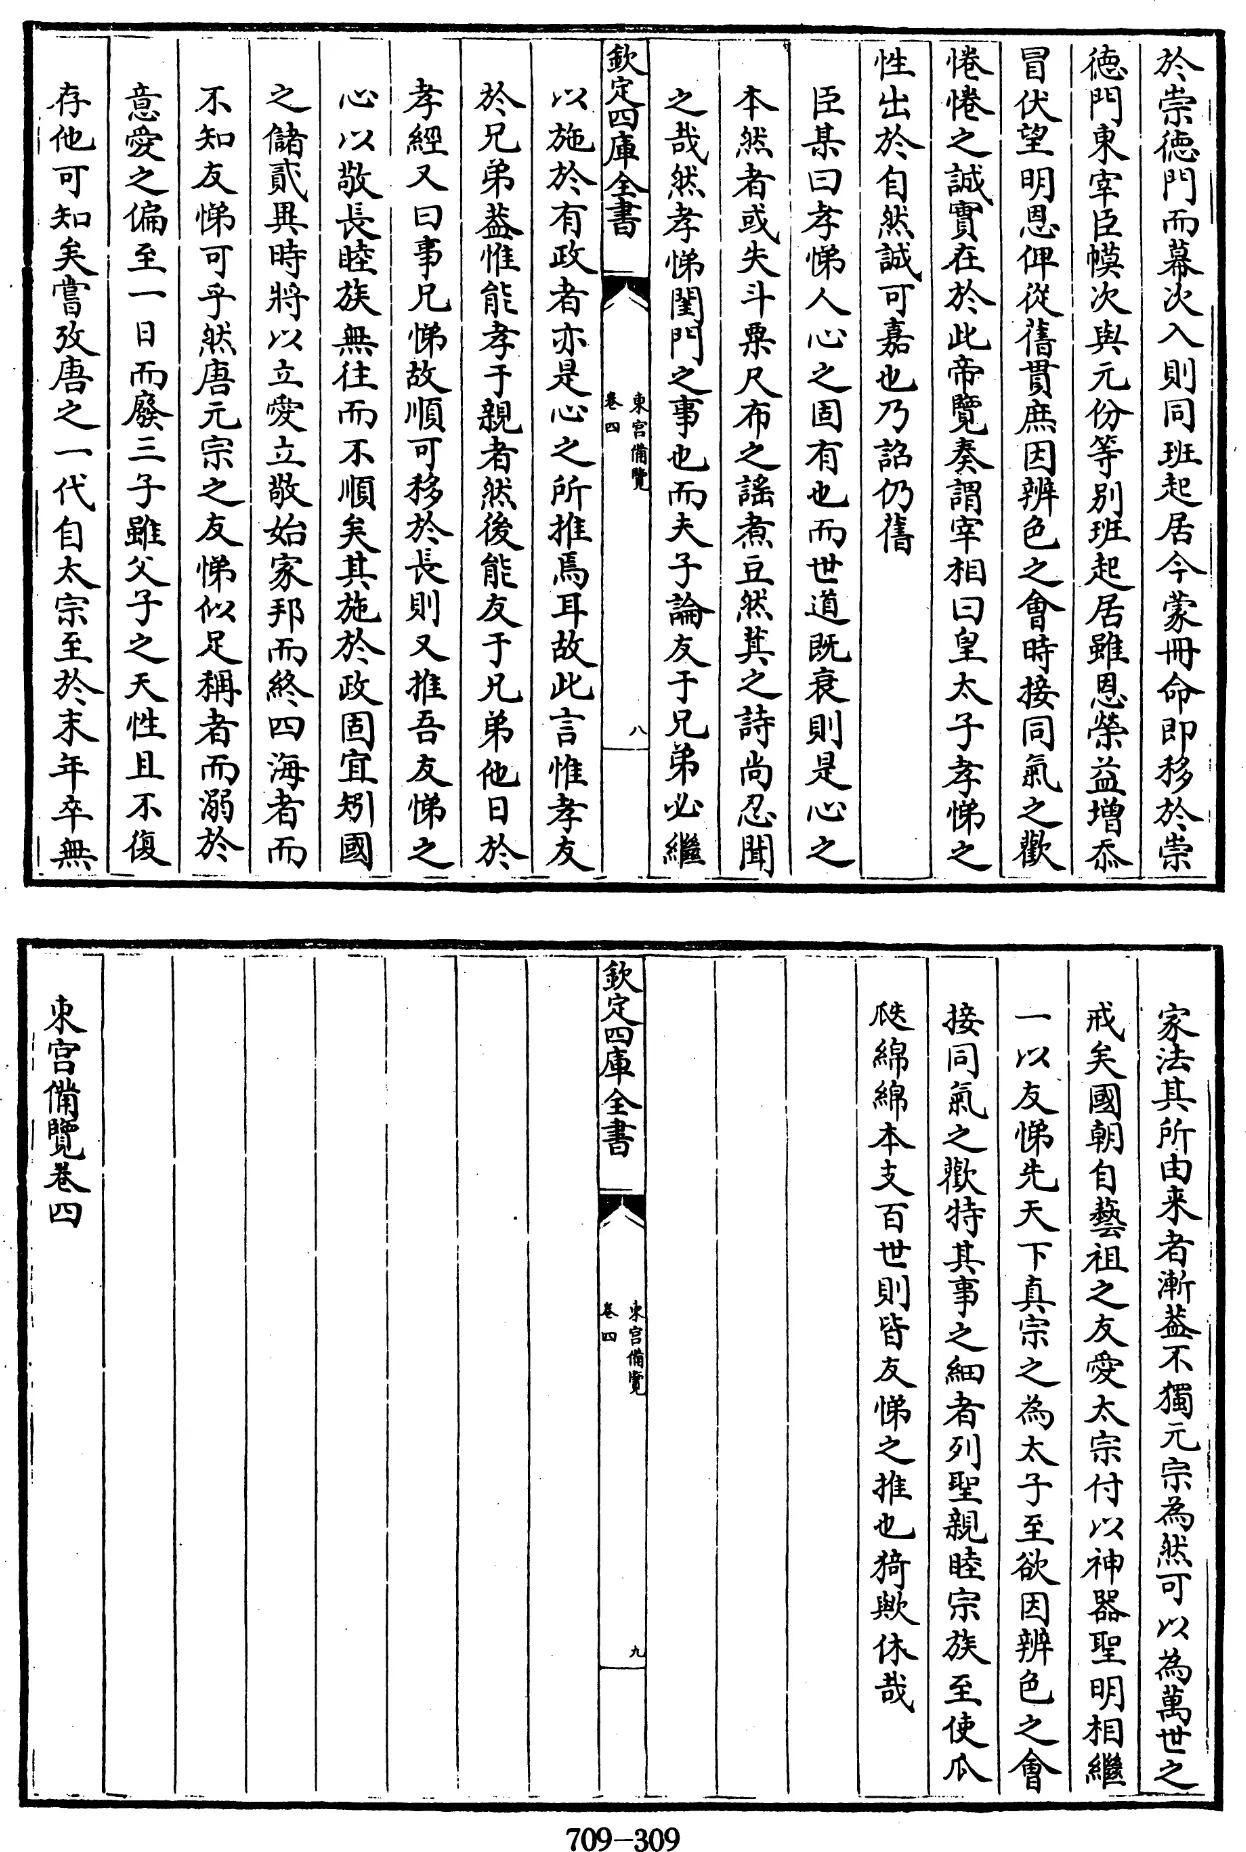 於崇德門而幕次入則同班起居今蒙冊命即移於崇
德門東宰臣幙次與元份等别班起居雖恩榮益增忝
冒伏望明恩俾從舊貫庶因辨色之會時接同氣之歡
惓惓之誠實在於此帝覽奏謂宰相曰皇太子孝悌之
性出於自然誠可嘉也乃詔仍舊
臣某曰孝悌人心之固有也而世道既衰則是心之
本然者或失斗粟尺布之謠煮豆然萁之詩尚忍聞
之哉然孝悌閨門之事也而夫子論友于兄弟必繼
欽定四庫全書
東宫備覽
卷四
八
以施於有政者亦是心之所推焉耳故此言惟孝友
於兄弟葢惟能孝于親者然後能友于兄弟他日於
孝經又曰事兄悌故順可移於長則又推吾友悌之
心以敬長睦族無往而不順矣其施於政固宜矧國
之儲貳異時將以立愛立敬始家邦而終四海者而
不知友悌可乎然唐元宗之友悌似足稱者而溺於
意愛之偏至一日而廢三子雖父子之天性且不復
存他可知矣嘗攷唐之一代自太宗至於末年卒無
家法其所由来者漸葢不獨元宗為然可以為萬世之
戒矣國朝自藝祖之友愛太宗付以神器聖明相繼
一以友悌先天下真宗之為太子至欲因辨色之會
接同氣之歡特其事之細者列聖親睦宗族至使瓜
瓞綿綿本支百世則皆友悌之推也猗歟休哉
欽定四庫全書
東宫備覽
卷四
九
東宫備覽卷四
709-309